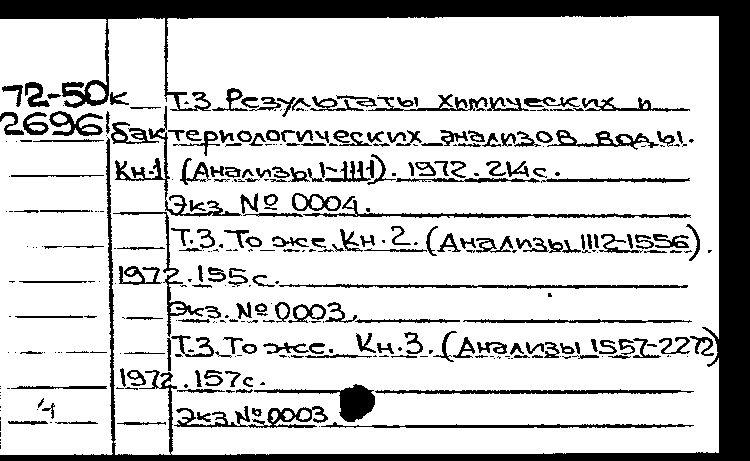 72-50к Т.3 Результаты химических и
2696 бактериологических анализов воды.
Кн.1 (Анализы 1-1111). 1972. 214с.
Экз. № 0004.
Т.3. То же. Кн.2. (Анализы 1112-1556).
1972. 155с.
Экз. № 0003.
Т.3. То же. Кн.3. (Анализы 1557-2272)
1972. 157с.
4 Экз. № 0003.